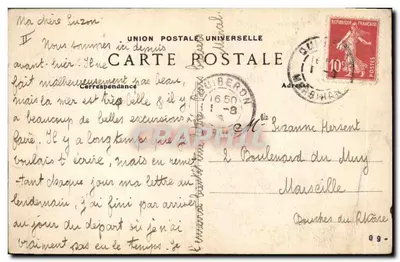 Ma chère Suzon
II
UNION POSTALE UNIVERSELLE
CARTE POSTALE
Nous sommes ici depuis
avant-hier. Il ne fait
malheureusement pas beau,
mais la mer est très belle, il y
a beaucoup de belles excursions à
faire. Il y a longtemps que je
voulais t'écrire, mais en remet-
tant chaque jour ma lettre au
lendemain, j'ai fini par arriver
au jour du départ où je n'ai
vraiment pas eu le temps. Je
Correspondance
Adresse
QUIBERON
16 50
1 - 8
MORBIHAN
REPUBLIQUE FRANÇAISE
10c
POSTES
CPArama
Mlle Suzanne Hersent
2 Boulevard du Muy
Marseille
Bouches du Rhône